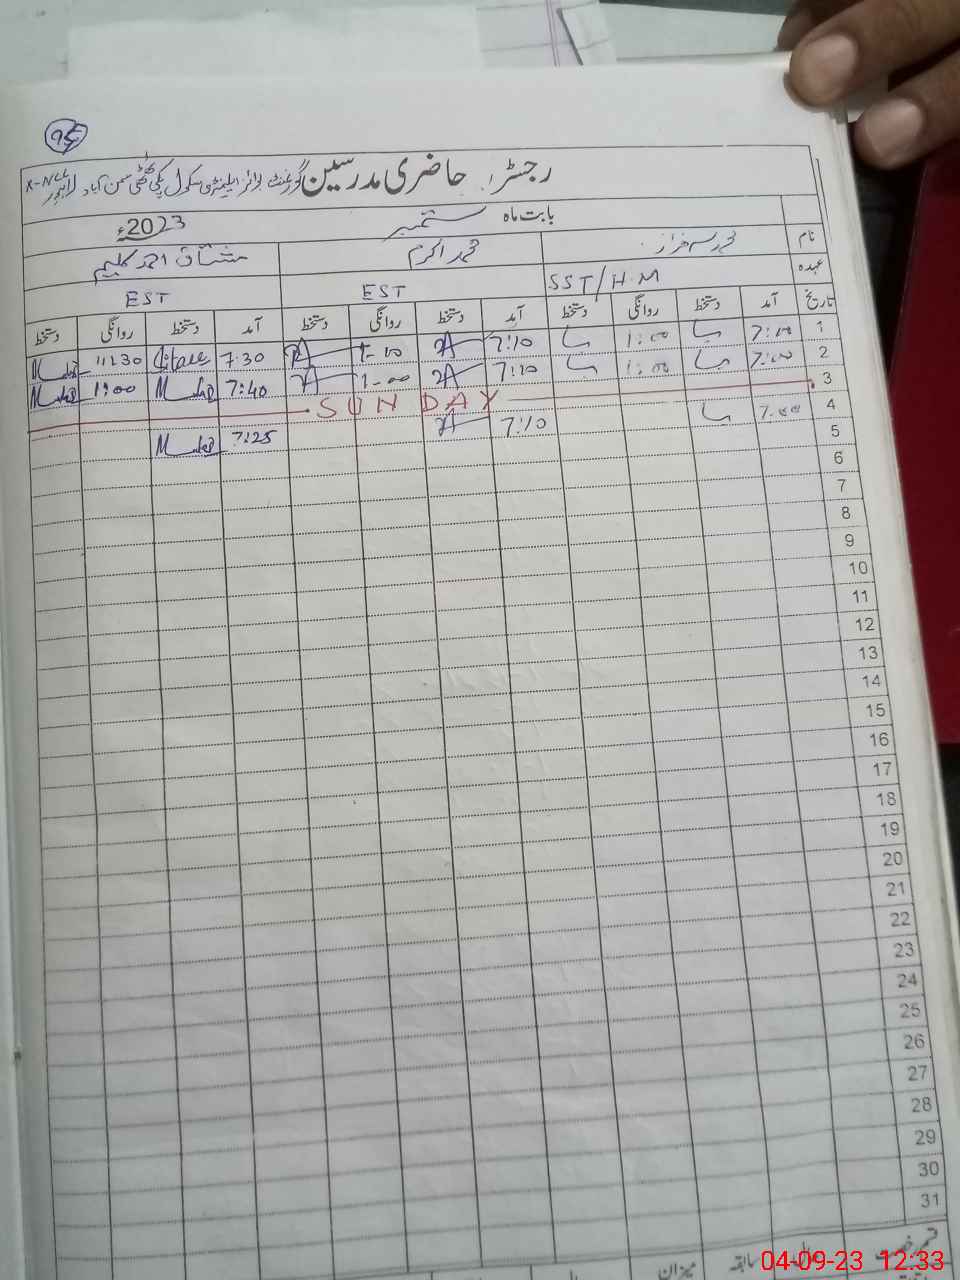 رجسٹر حاضری مدرسین گورنمنٹ بوائز ایلیمنٹری سکول پکی ٹھٹھی سمن آباد لاہور
بابت ماہ ستمبر 2023ء
نام محمد سرفراز محمد اکرم مشتاق احمد کلیم
عہدہ SST/H.M EST EST
تاریخ آمد دستخط روانگی دستخط آمد دستخط روانگی دستخط آمد دستخط روانگی دستخط
1 7:00 1:00 7:10 1-10 7:30 11:30
2 7:00 1:00 7:10 1-00 7:40 1:00
3 SUNDAY
4 7:00 7:10 7:25
5
6
7
8
9
10
11
12
13
14
15
16
17
18
19
20
21
22
23
24
25
26
27
28
29
30
31
قسم رخصت سابقہ میزان
04-09-23 12:33